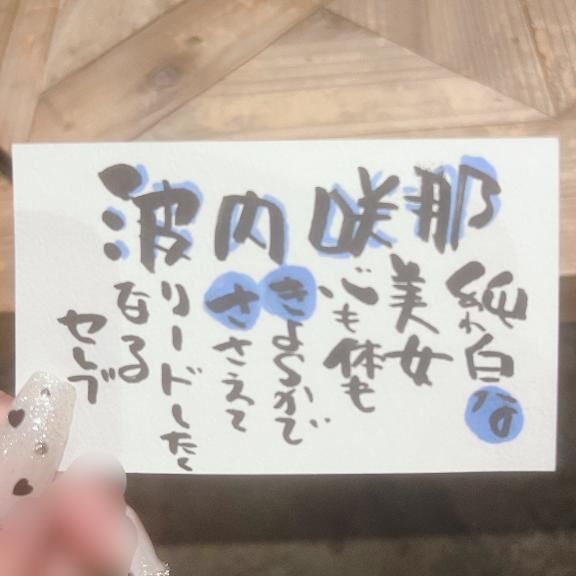 波内咲那
純白な
美女
心も体も
きよらかで
ささえて
リードしたく
なる
セレブ